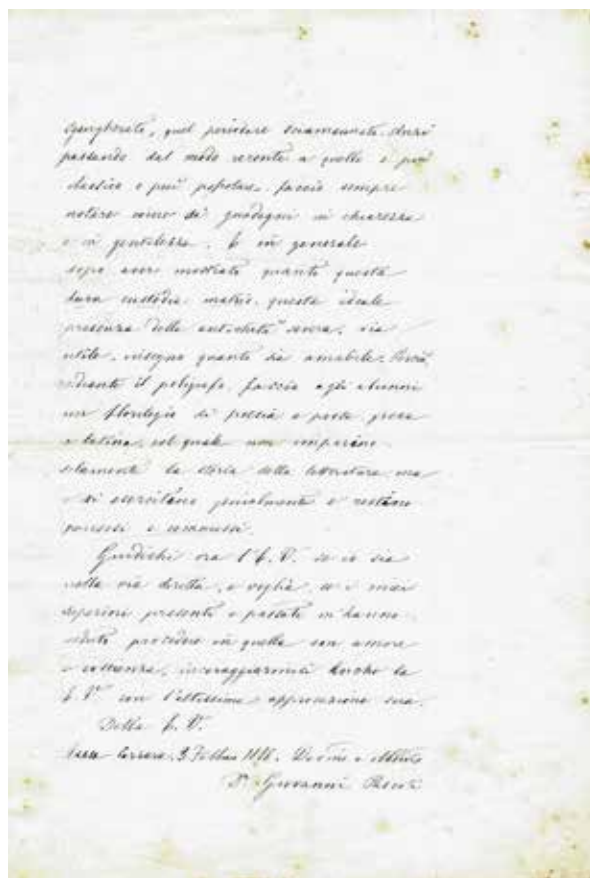 quel periodare
passando dal modo recente a quello e più
classico e più popolare, faccio sempre
notare come si guadagni in chiarezza
e in gentilezza. E in generale
dopo aver mostrato quanto questa
dura custodia matrix, questa ideale
presenza della antichità severa, sia
utile, insegno quanto sia amabile.
il poligrafo, faccio agli alunni
un florilegio di poesia e prosa greca
e latina, nel quale non imparino
solamente la storia della letteratura, ma
si esercitino genialmente e restino
e commossi.
Giudichi ora l'E. V. se io sia
nella via diretta, e voglia, se i miei
superiori presenti e passati m'hanno
veduto procedere in quella con amore
e costanza, incoraggiarmici anche la
E. V. con l'altissima approvazione sua.
Della E. V.
Massa Carrara, 3 Febbr.
Giovanni Pascoli